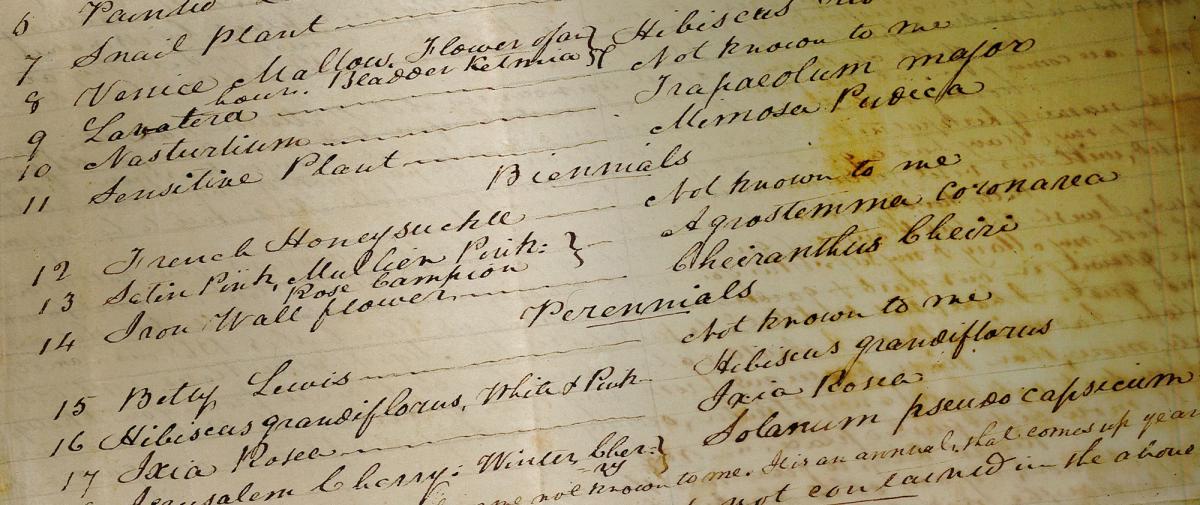 6
7 Snail Plant
8 Venice Mallow, Flower of an hour. Bladder Ketmia } Hibiscus
9 Lavatera Not known to me
10 Nasturtium Trapaeolum major
11 Sensitive Plant Mimosa Pudica
Biennials
12 French Honeysuckle Not known to me
13 Satin Pink, Mullien Pink: Rose Campion } Agrostemma coronarea
14 Iron Wall flower Cheiranthus Cheiri
Perennials
15 Betty Lewis Not known to me
16 Hibiscus grandiflorus, White & Pink Hibiscus grandiflorus
17 Ixia Rosea Ixia Rosea
Jerusalem Cherry: Winter Cherry } Solanum pseudo capsicum
not known to me. It is an annual, that comes up year
not contained in the above